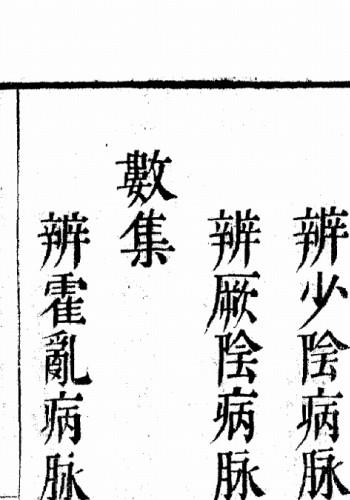 辨少陰病脉
辨厥陰病脉
數集
辨霍亂病脉